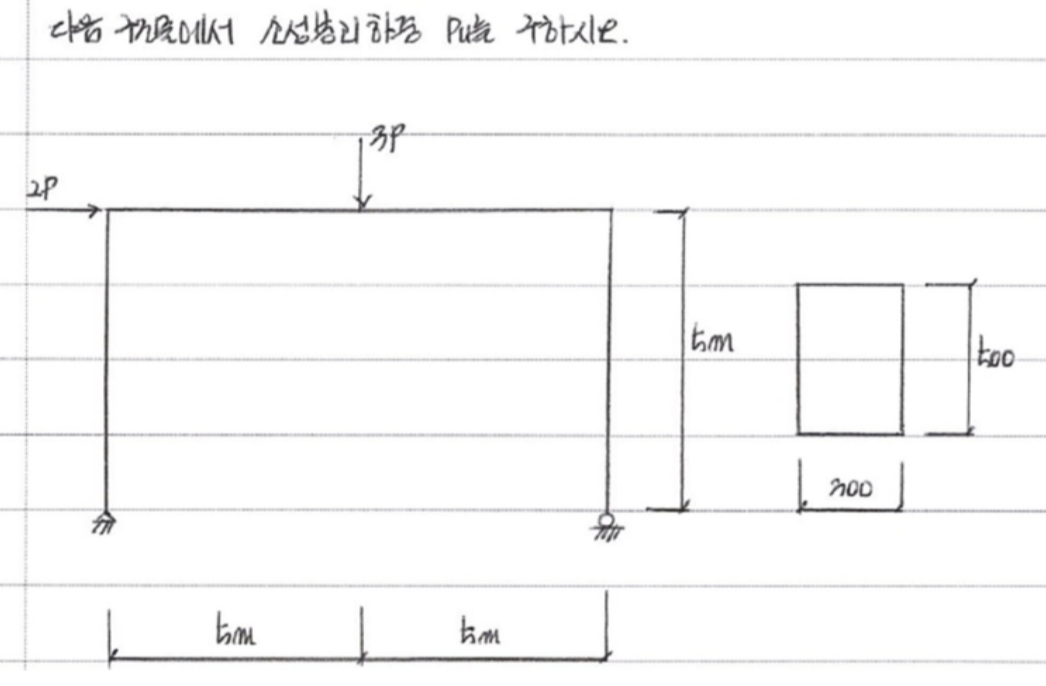 다음 구조물에서 소성붕괴하중 Pu를 구하시오.
3P
2P
5m
500
300
5m 5m